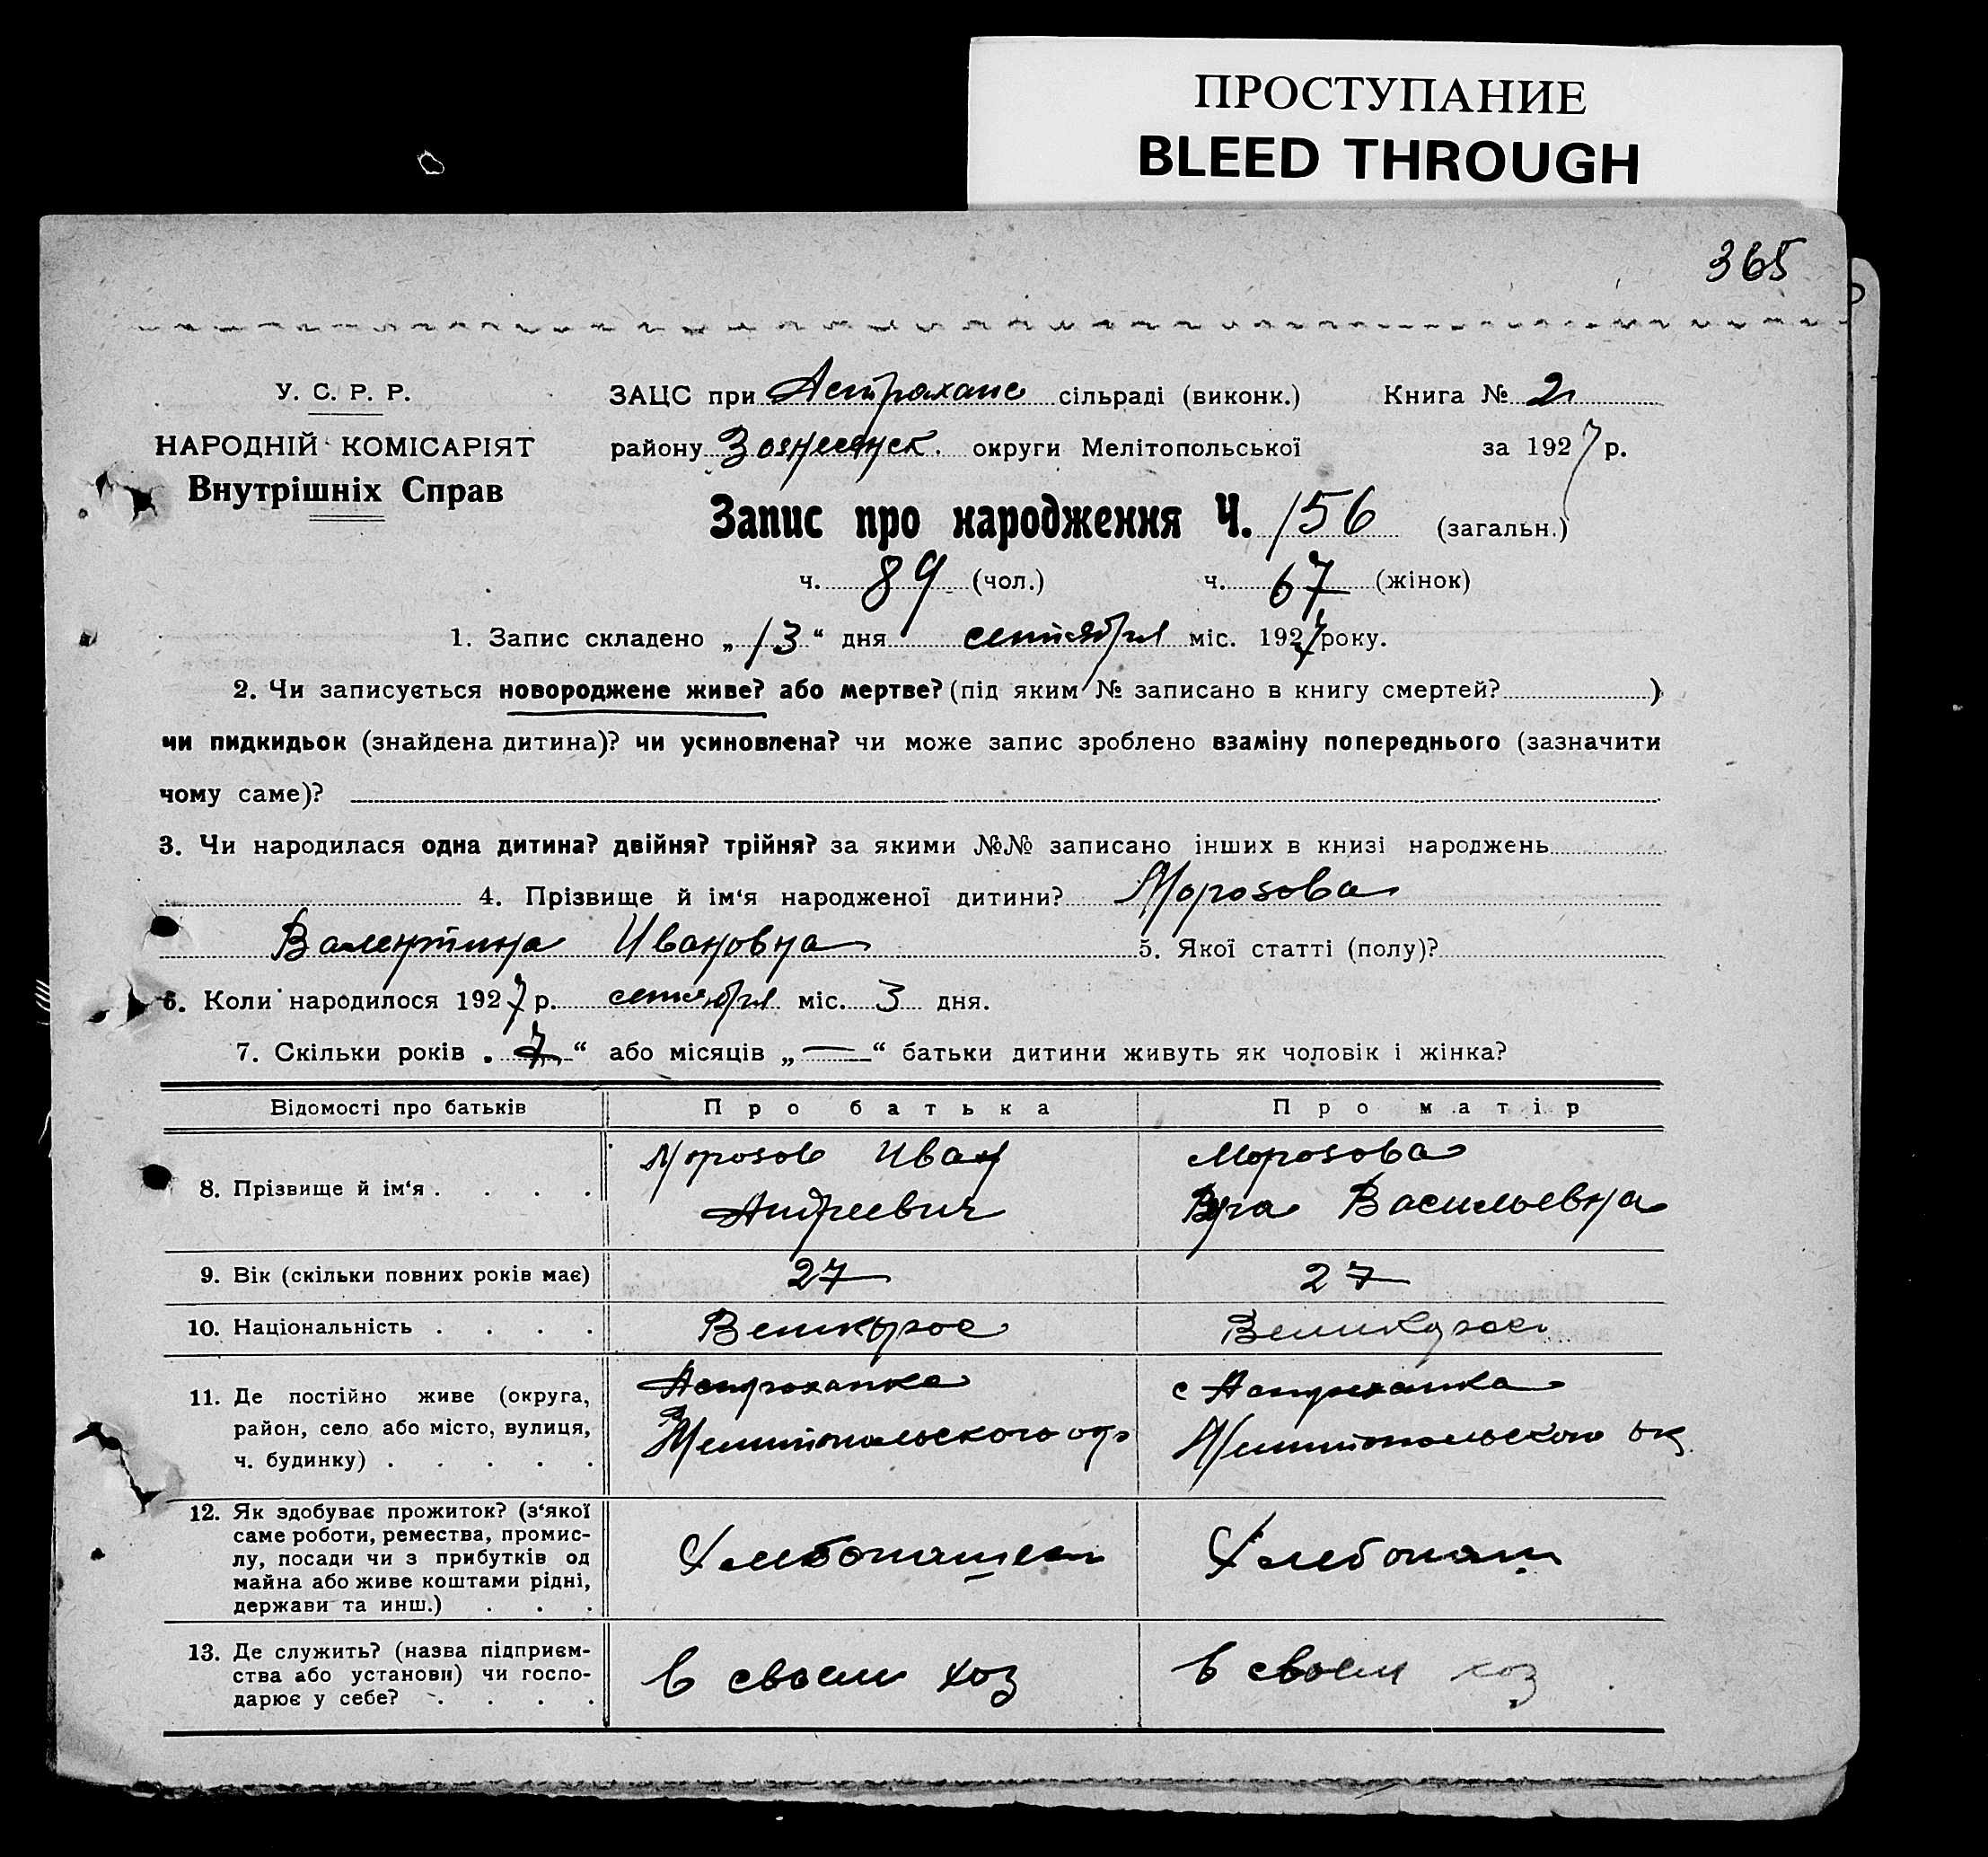 ПРОСТУПАНИЕ
BLEED THROUGH
365
У. С. Р. Р.
НАРОДНІЙ КОМІСАРІЯТ
Внутрішніх Справ
ЗАЦС при Астрахане сільраді (виконк.) Книга № 2
району Вознесенск. округи Мелітопольської за 1927 р.
Запис про народження Ч. 156 (загальн.)
ч. 89 (чол.) ч. 67 (жінок)
1. Запис складено „13“ дня сентября міс. 1927 року.
2. Чи записується новороджене живе? або мертве? (під яким № записано в книгу смертей? )
чи пидкидьок (знайдена дитина)? чи усиновлена? чи може запис зроблено взаміну попереднього (зазначити
чому саме)?
3. Чи народилася одна дитина? двійня? трійня? за якими №№ записано інших в книзі народжень
4. Прізвище й ім‘я народженої дитини? Морозова
Валентина Ивановна 5. Якої статті (полу)?
6. Коли народилося 1927 р. сентября міс. 3 дня.
7. Скільки років „7“ або місяців „—“ батьки дитини живуть як чоловік і жінка?
Відомості про батьків Про батька Про матір
8. Прізвище й ім‘я . . . .
Морозов Иван
Андреевич
Морозова
Вера Васильевна
9. Вік (скільки повних років має) 27 27
10. Національність . . . . Великорос Великорос
11. Де постійно живе (округа,
район, село або місто, вулиця,
ч. будинку) . . . . .
Астраханка
Мелитопольского окр
с Астраханка
Мелитопольского ок
12. Як здобуває прожиток? (з‘якої
саме роботи, ремества, промис-
лу, посади чи з прибутків од
майна або живе коштами рідні,
держави та инш.) . . .
Хлебопашец
Хлебопаш
13. Де служить? (назва підприєм-
ства або установи) чи госпо-
дарює у себе? . . . .
в своем хоз
в своем хоз